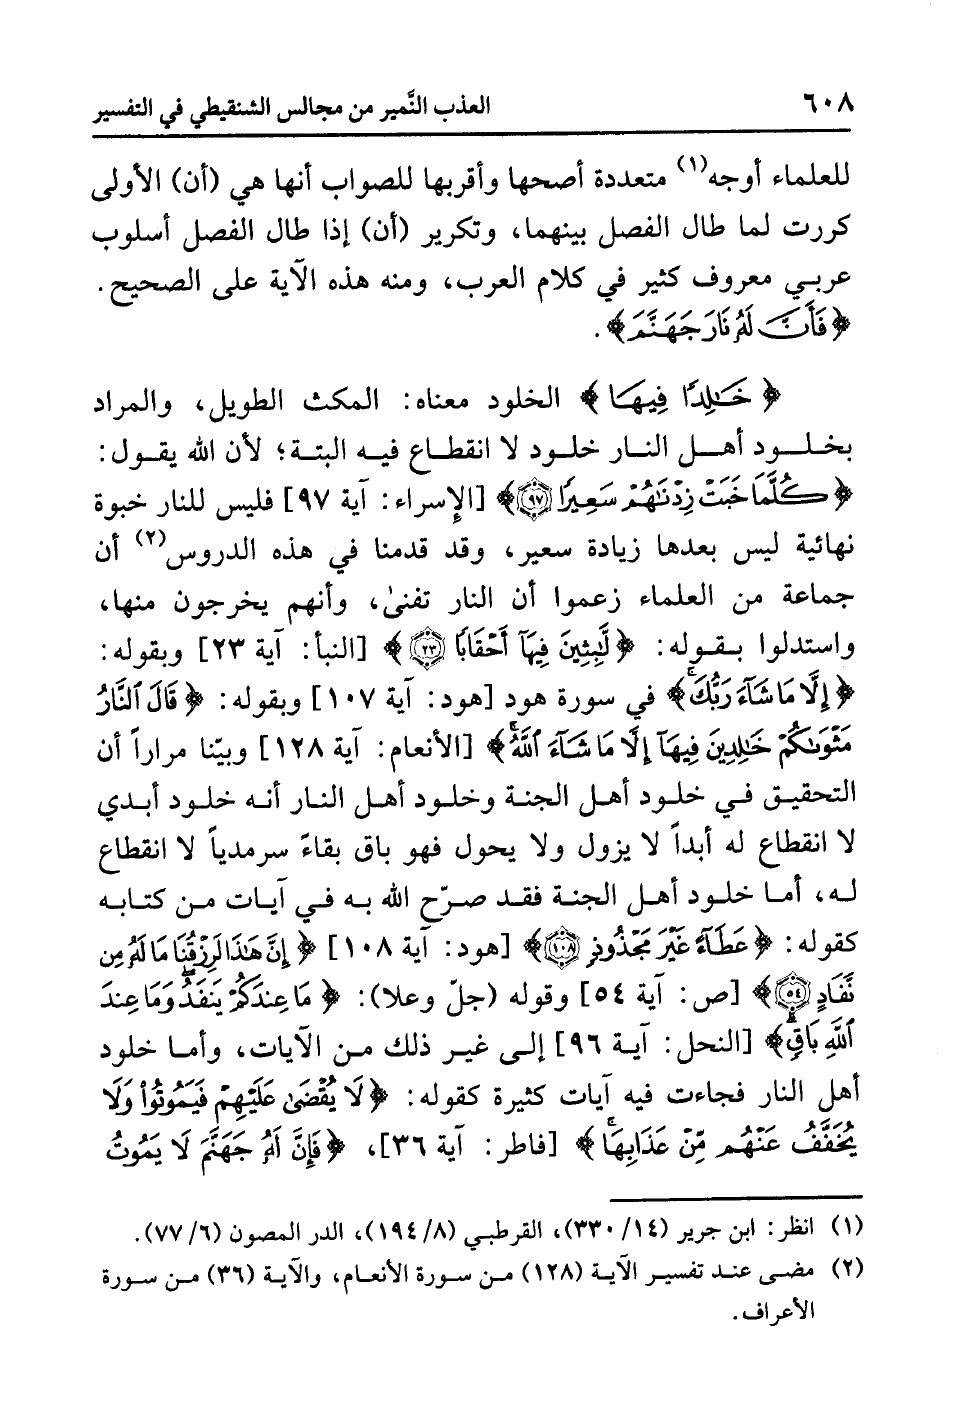 ٦٠٨ العذب النَّمير من مجالس الشنقيطي في التفسير
للعلماء أوجه(١) متعددة أصحها وأقربها للصواب أنها هي (أن) الأولى
كررت لما طال الفصل بينهما، وتكرير (أن) إذا طال الفصل أسلوب
عربي معروف كثير في كلام العرب، ومنه هذه الآية على الصحيح.
﴿فَأَنَّ لَهُۥ نَارَ جَهَنَّمَ﴾.
﴿خَـٰلِدًا فِيهَا﴾ الخلود معناه: المكث الطويل، والمراد
بخلـود أهـل النـار خلـود لا انقطـاع فيـه البتـة؛ لأن الله يقـول:
﴿كُلَّمَا خَبَتْ زِدْنَـٰهُمْ سَعِيرًا ٩٧﴾ [الإسراء: آية ٩٧] فليس للنار خبوة
نهائية ليس بعدها زيادة سعير، وقد قدمنا في هذه الدروس(٢) أن
جماعة من العلماء زعموا أن النار تفنىٰ، وأنهم يخرجون منها،
واستدلوا بـقـولـه: ﴿لَّـٰبِثِينَ فِيهَآ أَحْقَابًا ٢٣﴾ [النبأ: آية ٢٣] وبقوله:
﴿إِلَّا مَا شَآءَ رَبُّكَ﴾ في سورة هود [هود: آية ١٠٧] وبقوله: ﴿قَالَ ٱلنَّارُ
مَثْوَىٰكُمْ خَـٰلِدِينَ فِيهَآ إِلَّا مَا شَآءَ ٱللَّهُ﴾ [الأنعام: آية ١٢٨] وبيّنا مراراً أن
التحقيق في خلود أهل الجنة وخلود أهل النار أنه خلود أبدي
لا انقطاع له أبداً لا يزول ولا يحول فهو باق بقاءً سرمدياً لا انقطاع
لـه، أمـا خلـود أهـل الجنـة فقـد صـرّح الله بـه فـي آيـات مـن كتـابـه
كقوله: ﴿عَطَآءً غَيْرَ مَجْذُوذٍ ١٠٨﴾ [هود: آية ١٠٨] ﴿إِنَّ هَـٰذَا لَرِزْقُنَا مَا لَهُۥ مِن
نَّفَادٍ ٥٤﴾ [ص: آية ٥٤] وقوله (جلّ وعلا): ﴿مَا عِندَكُمْ يَنفَدُ وَمَا عِندَ
ٱللَّهِ بَاقٍ﴾ [النحل: آيـة ٩٦] إلـى غيـر ذلك مـن الآيات، وأمـا خلود
أهل النار فجاءت فيه آيات كثيرة كقوله: ﴿لَا يُقْضَىٰ عَلَيْهِمْ فَيَمُوتُوا۟ وَلَا
يُخَفَّفُ عَنْهُم مِّنْ عَذَابِهَا﴾ [فاطر: آية ٣٦]، ﴿فَإِنَّ لَهُۥ جَهَنَّمَ لَا يَمُوتُ
(١) انظر: ابن جرير (١٤/ ٣٣٠)، القرطبي (٨/ ١٩٤)، الدر المصون (٦/ ٧٧).
(٢) مضـى عنـد تفسيـر الآيـة (١٢٨) مـن سـورة الأنعـام، والآيـة (٣٦) مـن سـورة
الأعراف.